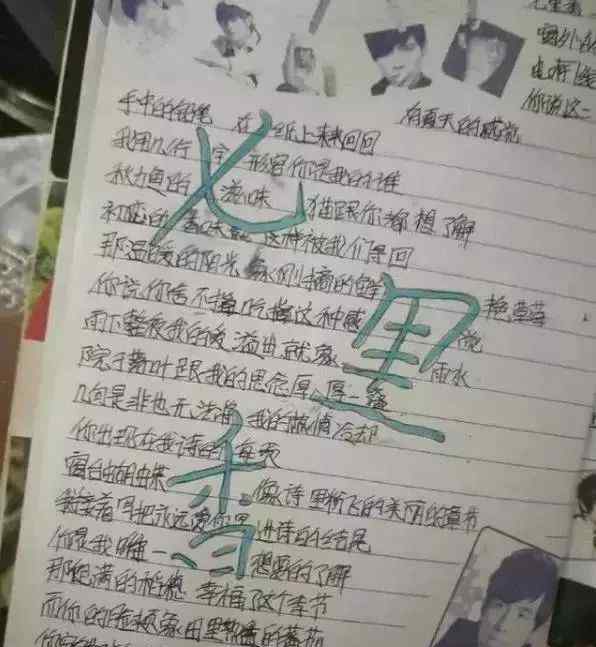 窗外的
电线
你说这一
有夏天的感觉
手中的铅笔 在 纸上来来回回
我用几行 字 形容你是我的谁
秋刀鱼的 滋味 猫跟你都想了解
初恋的香味就这样被我们寻回
那温暖的阳光 象刚摘的鲜 艳草莓
你说你舍不得吃掉这种感 觉
雨下整夜我的爱溢出就象 雨水
院子落叶跟我的思念厚厚一叠
几句是非也无法将 我的热情冷却
你出现在我诗的 每页
窗台蝴蝶 象诗里纷飞的美丽的章节
我接着写把永远爱你写进诗的结尾
你是我唯一 想要的了解
那饱满的稻穗 幸福了这个季节
而你的脸颊象田里熟透的蕃茄
七
里
香